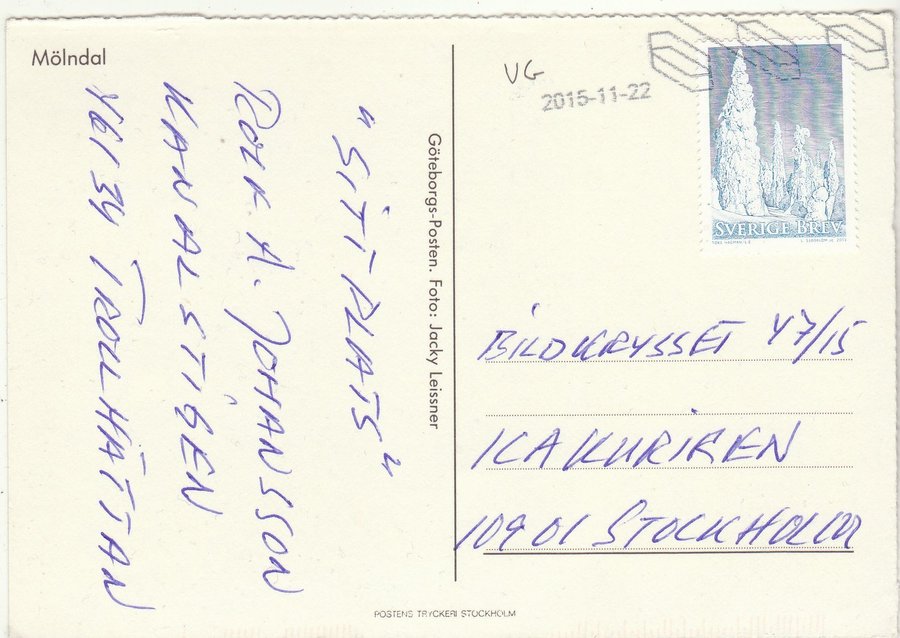 Mölndal
"SITTPLATS"
ROLF A. JOHANSSON
KANALSTIGEN
461 34 TROLLHÄTTAN
Göteborgs-Posten. Foto: Jacky Leissner
VG
2015-11-22
SVERIGE BREV
BILDKRYSSET 47/15
ICAKURIREN
10901 STOCKHOLM
POSTENS TRYCKERI STOCKHOLM